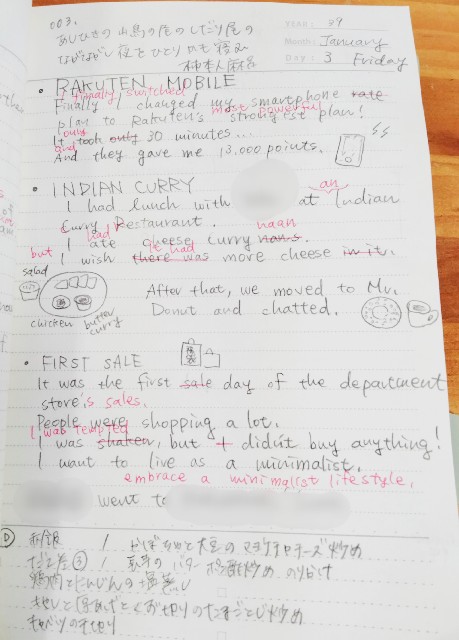 003.
あしひきの山鳥の尾のしだり尾の
ながながし夜をひとりかも寝む
柿本人麻呂
YEAR: 39
Month: January
DAY: 3 Friday
• RAKUTEN MOBILE
finally switched
Finally I changed my smartphone rate
most powerful
plan to Rakuten's strongest plan!
only
It took only 30 minutes...
and
And they gave me 13,000 points.
• INDIAN CURRY
an
I had lunch with at Indian
Curry Restaurant.
had naan
I ate cheese curry nan.s.
but it had
I wish there was more cheese in it.
salad
chicken butter curry
After that, we moved to Mr.
Donut and chatted.
• FIRST SALE
It was the first sale day of the department
store's sales.
People were shopping a lot.
I was tempted
I was shaken, but I didn't buy anything!
I want to live as a minimalist.
embrace a minimalist lifestyle.
went to
D
/ かぼちゃと大豆のマヨケチャチーズ炒め
③ / のバターポン酢炒め のりかけ
鶏肉とにんじんの蒸し